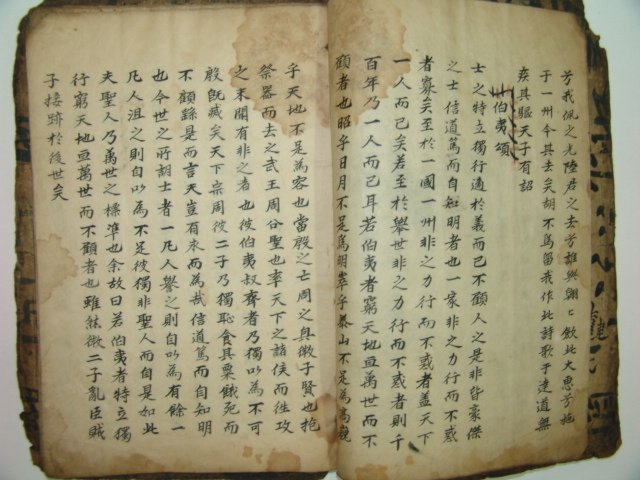 兮我佩之光陸君之去兮誰與翺〻斂此大惠兮施
于一州今其去矣胡不爲留我作此詩歌于逵道無
疾其驅天子有詔
伯夷頌
士之特立獨行適於義而已不顧人之是非皆豪傑
之士信道篤而自知明者也一家非之力行而不惑
者寡矣至於一國一州非之力行而不惑者盖天下
一人而已矣若至於擧世非之力行而不惑者則千
百年乃一人而已耳若伯夷者窮天地亘萬世而不
顧者也昭乎日月不足爲明崒乎泰山不足爲高巍
乎天地不足爲容也當殷之亡周之興微子賢也抱
祭器而去之武王周公聖也率天下之諸侯而徃攻
之未聞有非之者也彼伯夷叔齊者乃獨以爲不可
殷旣滅矣天下宗周彼二子乃獨恥食其粟餓死而
不顧繇是而言夫豈有求而爲哉信道篤而自知明
也今世之所胡士者一凡人譽之則自以爲有餘一
凡人沮之則自以爲不足彼獨非聖人而自是如此
夫聖人乃萬世之標準也余故曰若伯夷者特立獨
行窮天地亘萬世而不顧者也雖然微二子亂臣賊
子接跡於後世矣